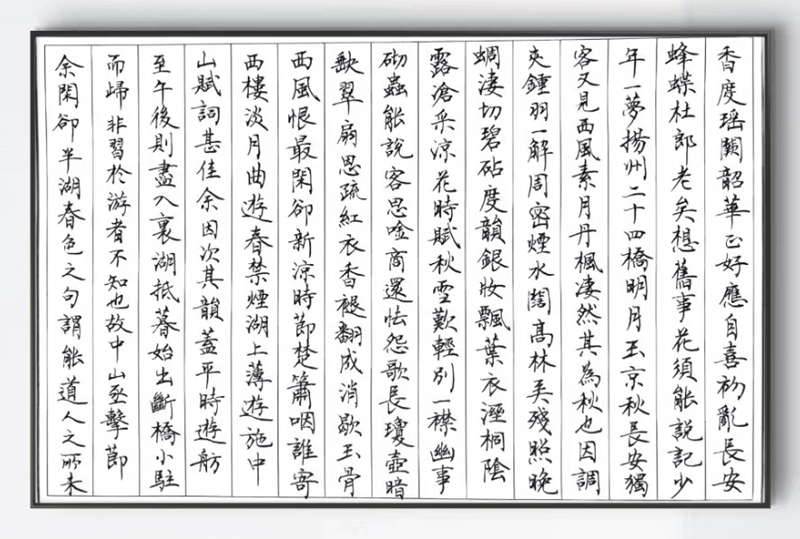 香度瑶闕韶華正好應自喜初亂長安
蜂蝶杜郎老矣想舊事花須能說記少
年一夢揚州二十四橋明月玉京秋長安獨
客又見西風素月丹楓淒然其為秋也因調
夾鍾羽一解周密煙水闊高林弄殘照晚
蜩淒切碧砧度韻銀妝飄葉衣溼桐陰
露滄采涼花時賦秋雪歎輕別一襟幽事
砌蟲能說客思唫商還怯怨歌長瓊壺暗
缺翠扇恩疏紅衣香褪翻成消歇玉骨
西風恨最閑卻新涼時節楚簫咽誰寄
西樓淡月曲遊春禁煙湖上薄遊施中
山賦詞甚佳余因次其韻蓋平時遊舫
至午後則盡入裏湖抵暮始出斷橋小駐
而歸非習於游者不知也故中山亟擊節
余閑卻半湖春色之句謂能道人之所未